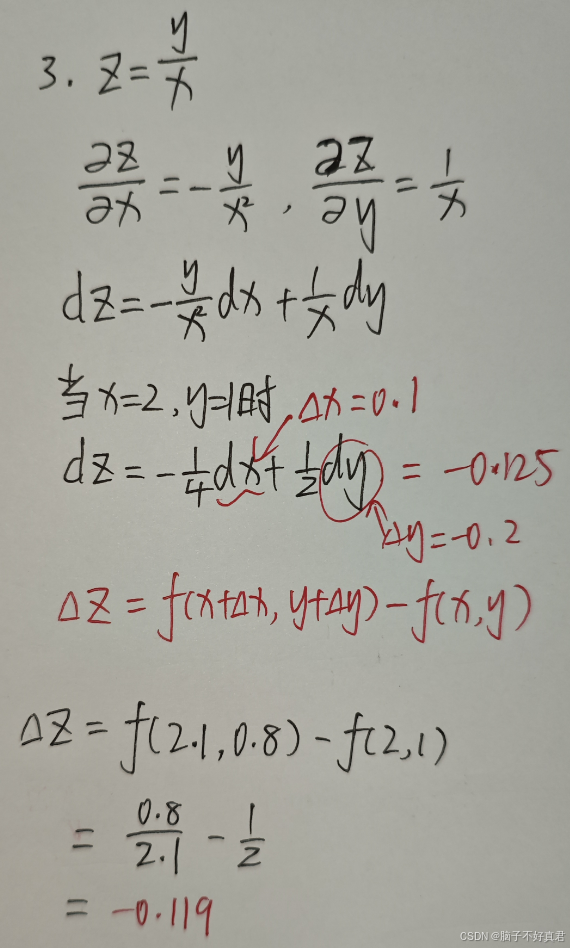 3. z = y/x
∂z/∂x = -y/x², ∂z/∂y = 1/x
dz = -y/x² dx + 1/x dy
当 x=2, y=1时 Δx=0.1
dz = -1/4 dx + 1/2 dy = -0.125
Δy=-0.2
Δz = f(x+Δx, y+Δy) - f(x,y)
Δz = f(2.1, 0.8) - f(2,1)
= 0.8/2.1 - 1/2
= -0.119
CSDN @脑子不好真君